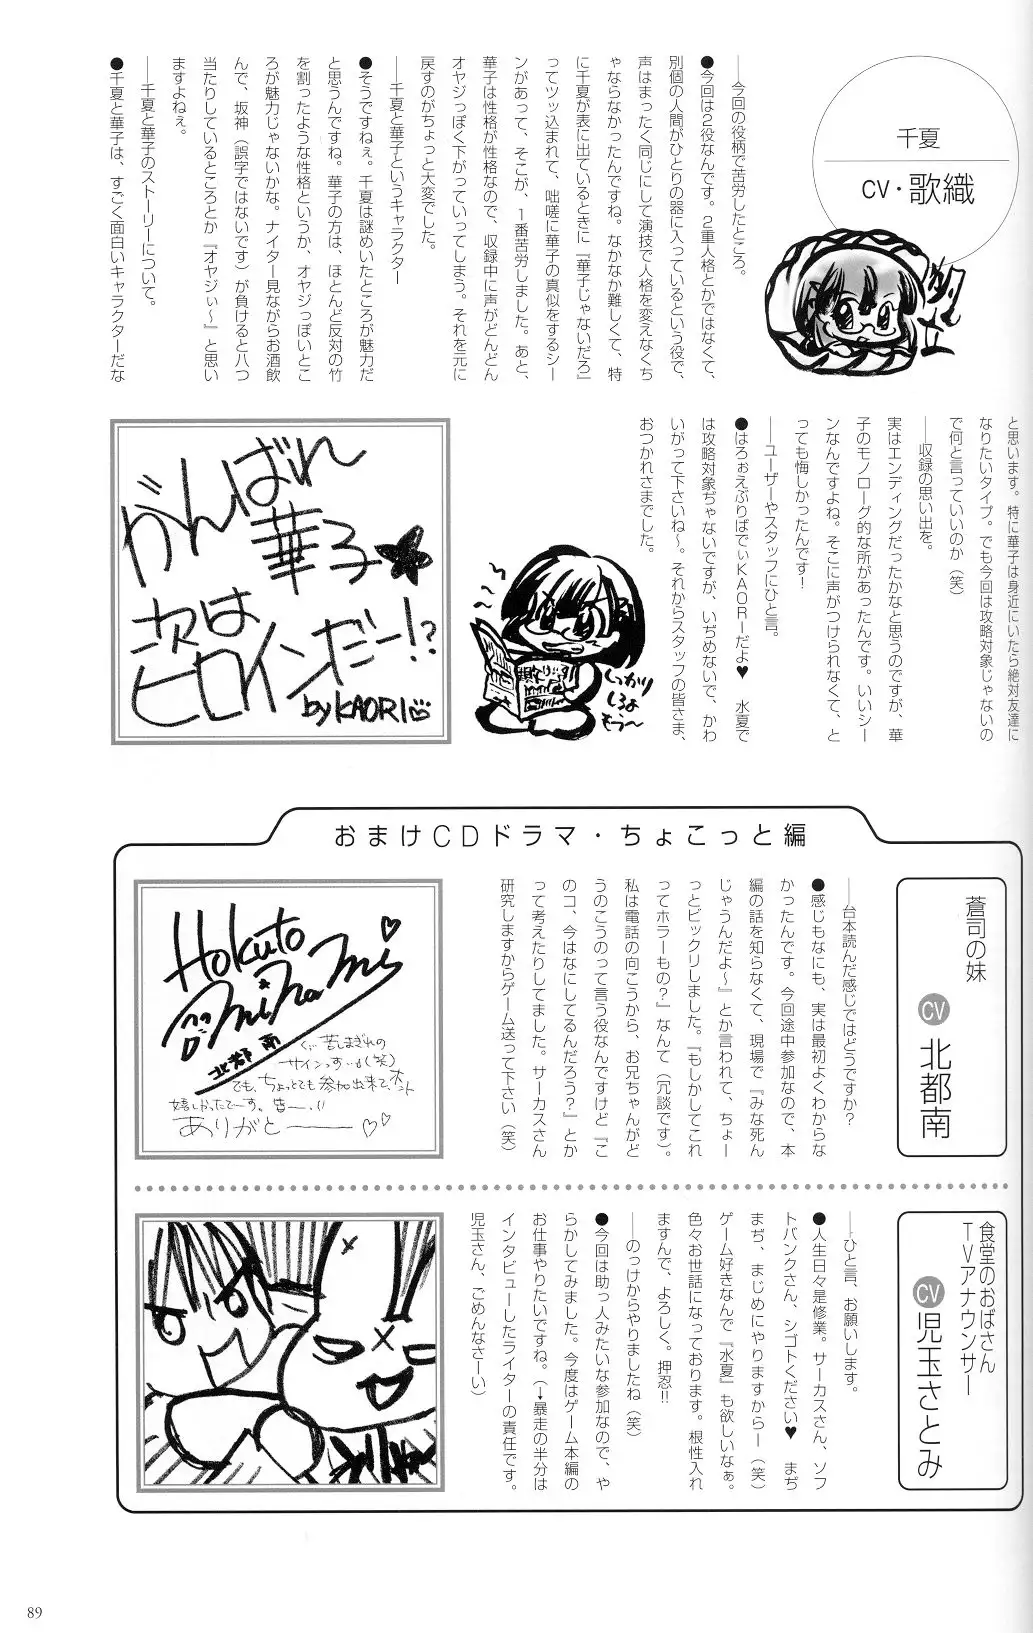 千夏
CV・歌織
――今回の役柄で苦労したところ。
●今回は2役なんです。2重人格とかではなくて、
別個の人間がひとりの器に入っているという役で、
声はまったく同じにして演技で人格を変えなくち
ゃならなかったんですね。なかなか難しくて、特
に千夏が表に出ているときに『華子じゃないだろ』
ってツッ込まれて、咄嗟に華子の真似をするシー
ンがあって、そこが、1番苦労しました。あと、
華子は性格が性格なので、収録中に声がどんどん
オヤジっぽく下がっていってしまう。それを元に
戻すのがちょっと大変でした。
――千夏と華子というキャラクター
●そうですねぇ。千夏は謎めいたところが魅力だ
と思うんですね。華子の方は、ほとんど反対の竹
を割ったような性格というか、オヤジっぽいとこ
ろが魅力じゃないかな。ナイター見ながらお酒飲
んで、坂神（誤字ではないです）が負けると八つ
当たりしているところとか『オヤジぃ〜』と思い
ますよねぇ。
――千夏と華子のストーリーについて。
●千夏と華子は、すごく面白いキャラクターだな
と思います。特に華子は身近にいたら絶対友達に
なりたいタイプ。でも今回は攻略対象じゃないの
で何と言っていいのか（笑）
――収録の思い出を。
実はエンディングだったかなと思うのですが、華
子のモノローグ的な所があったんです。いいシー
ンなんですよね。そこに声がつけられなくて、と
っても悔しかったんです！
――ユーザーやスタッフにひと言。
●はろぉえぶりばでぃKAORIーだよ♥　水夏で
は攻略対象ぢゃないですが、いぢめないで、かわ
いがって下さいね〜。それからスタッフの皆さま、
おつかれさまでした。
しっかり
しろよ
もう〜
がんばれ
華子★
次は
ヒロインだー!?
by KAORI
おまけCDドラマ・ちょこっと編
蒼司の妹
CV 北都南
――台本読んだ感じではどうですか？
●感じもなにも、実は最初よくわからな
かったんです。今回途中参加なので、本
編の話を知らなくて、現場で『みな死ん
じゃうんだよ〜』とか言われて、ちょー
っとビックリしました。『もしかしてこれ
ってホラーもの？』なんて（冗談です）。
私は電話の向こうから、お兄ちゃんがど
うのこうのって言う役なんですけど『こ
のコ、今はなにしてるんだろう？』とか
って考えたりしてました。サーカスさん
研究しますからゲーム送って下さい（笑）
Hokuto
Minami♡
北都南
ぐ…苦しまぎれの
サインっす…♪(笑)
でも、ちょっとでも参加出来て、ホント
嬉しかったでーす。皆ー!!
ありがとーーー♡♡
食堂のおばさん
TVアナウンサー
CV 児玉さとみ
――ひと言、お願いします。
●人生日々是修業。サーカスさん、ソフ
トバンクさん、シゴトください♥　まぢ
まぢ、まじめにやりますからー（笑）
ゲーム好きなんで『水夏』も欲しいなぁ。
色々お世話になっております。根性入れ
ますんで、よろしく。押忍!!
――のっけからやりましたね（笑）
●今回は助っ人みたいな参加なので、や
らかしてみました。今度はゲーム本編の
お仕事やりたいですね。（→暴走の半分は
インタビューしたライターの責任です。
児玉さん、ごめんなさーい）
89